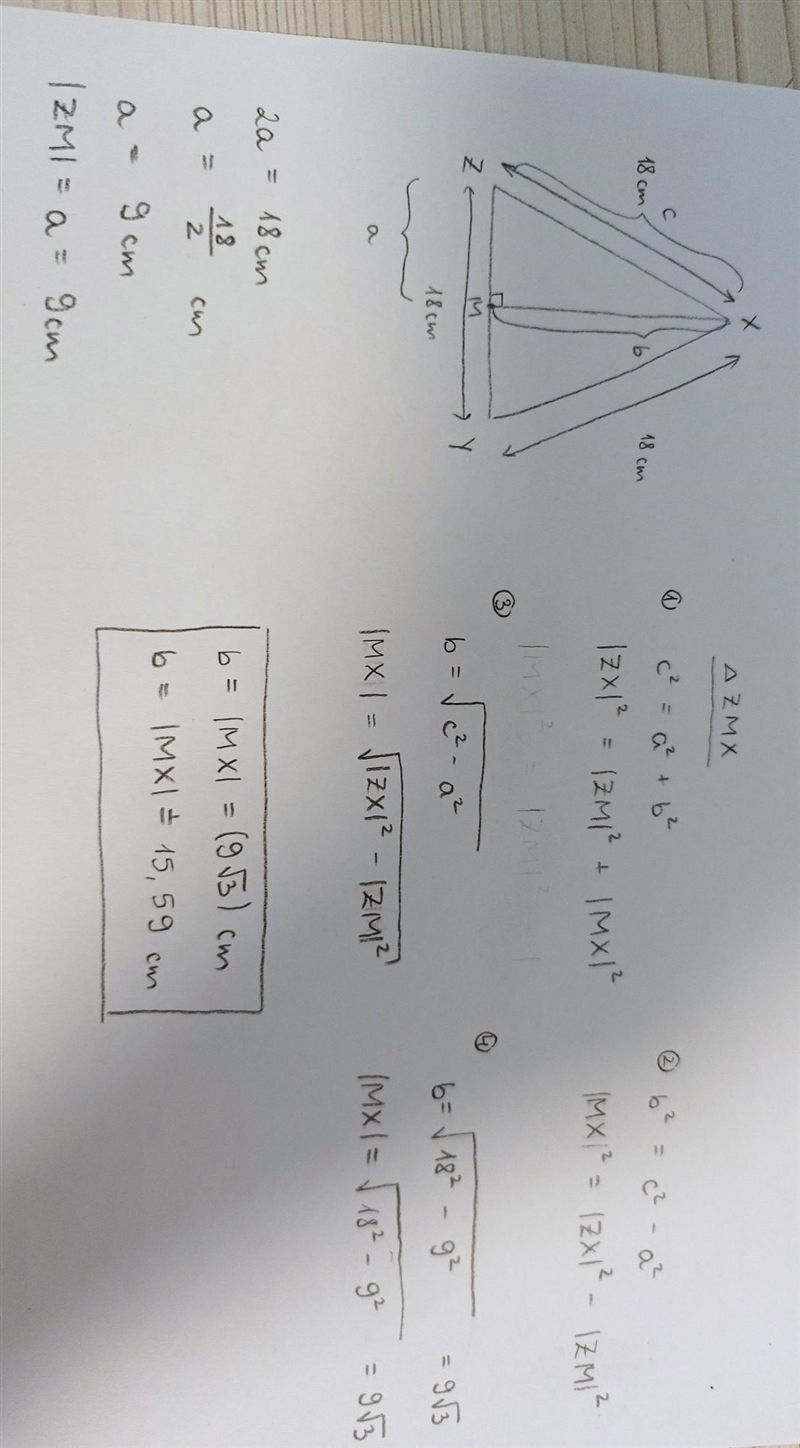 X
c
18 cm
b
18 cm
Z
M
Y
18 cm
a
2a = 18 cm
a = 18/2 cm
a = 9 cm
|ZM| = a = 9 cm
△ ZMX
① c² = a² + b²
|ZX|² = |ZM|² + |MX|²
② b² = c² - a²
|MX|² = |ZX|² - |ZM|²
|MX|² = |ZM|² - |
③
b = √(c² - a²)
|MX| = √(|ZX|² - |ZM|²)
④
b = √(18² - 9²) = 9√3
|MX| = √(18² - 9²) = 9√3
b = |MX| = (9√3) cm
b = |MX| ≐ 15,59 cm